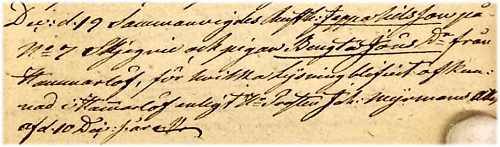 Dec: d. 19 Sammanvigdes Åboph: Jeppa Nilsson på
No 7 Skjegrie och pigan Bengta Jöns Dr från
Hammarlöf, för hvilka Lysning blifvit afkun-
nad i Hammarlöf enligt Hr Prosten Joh: Nijmans Att:
af d. 10 Dec: